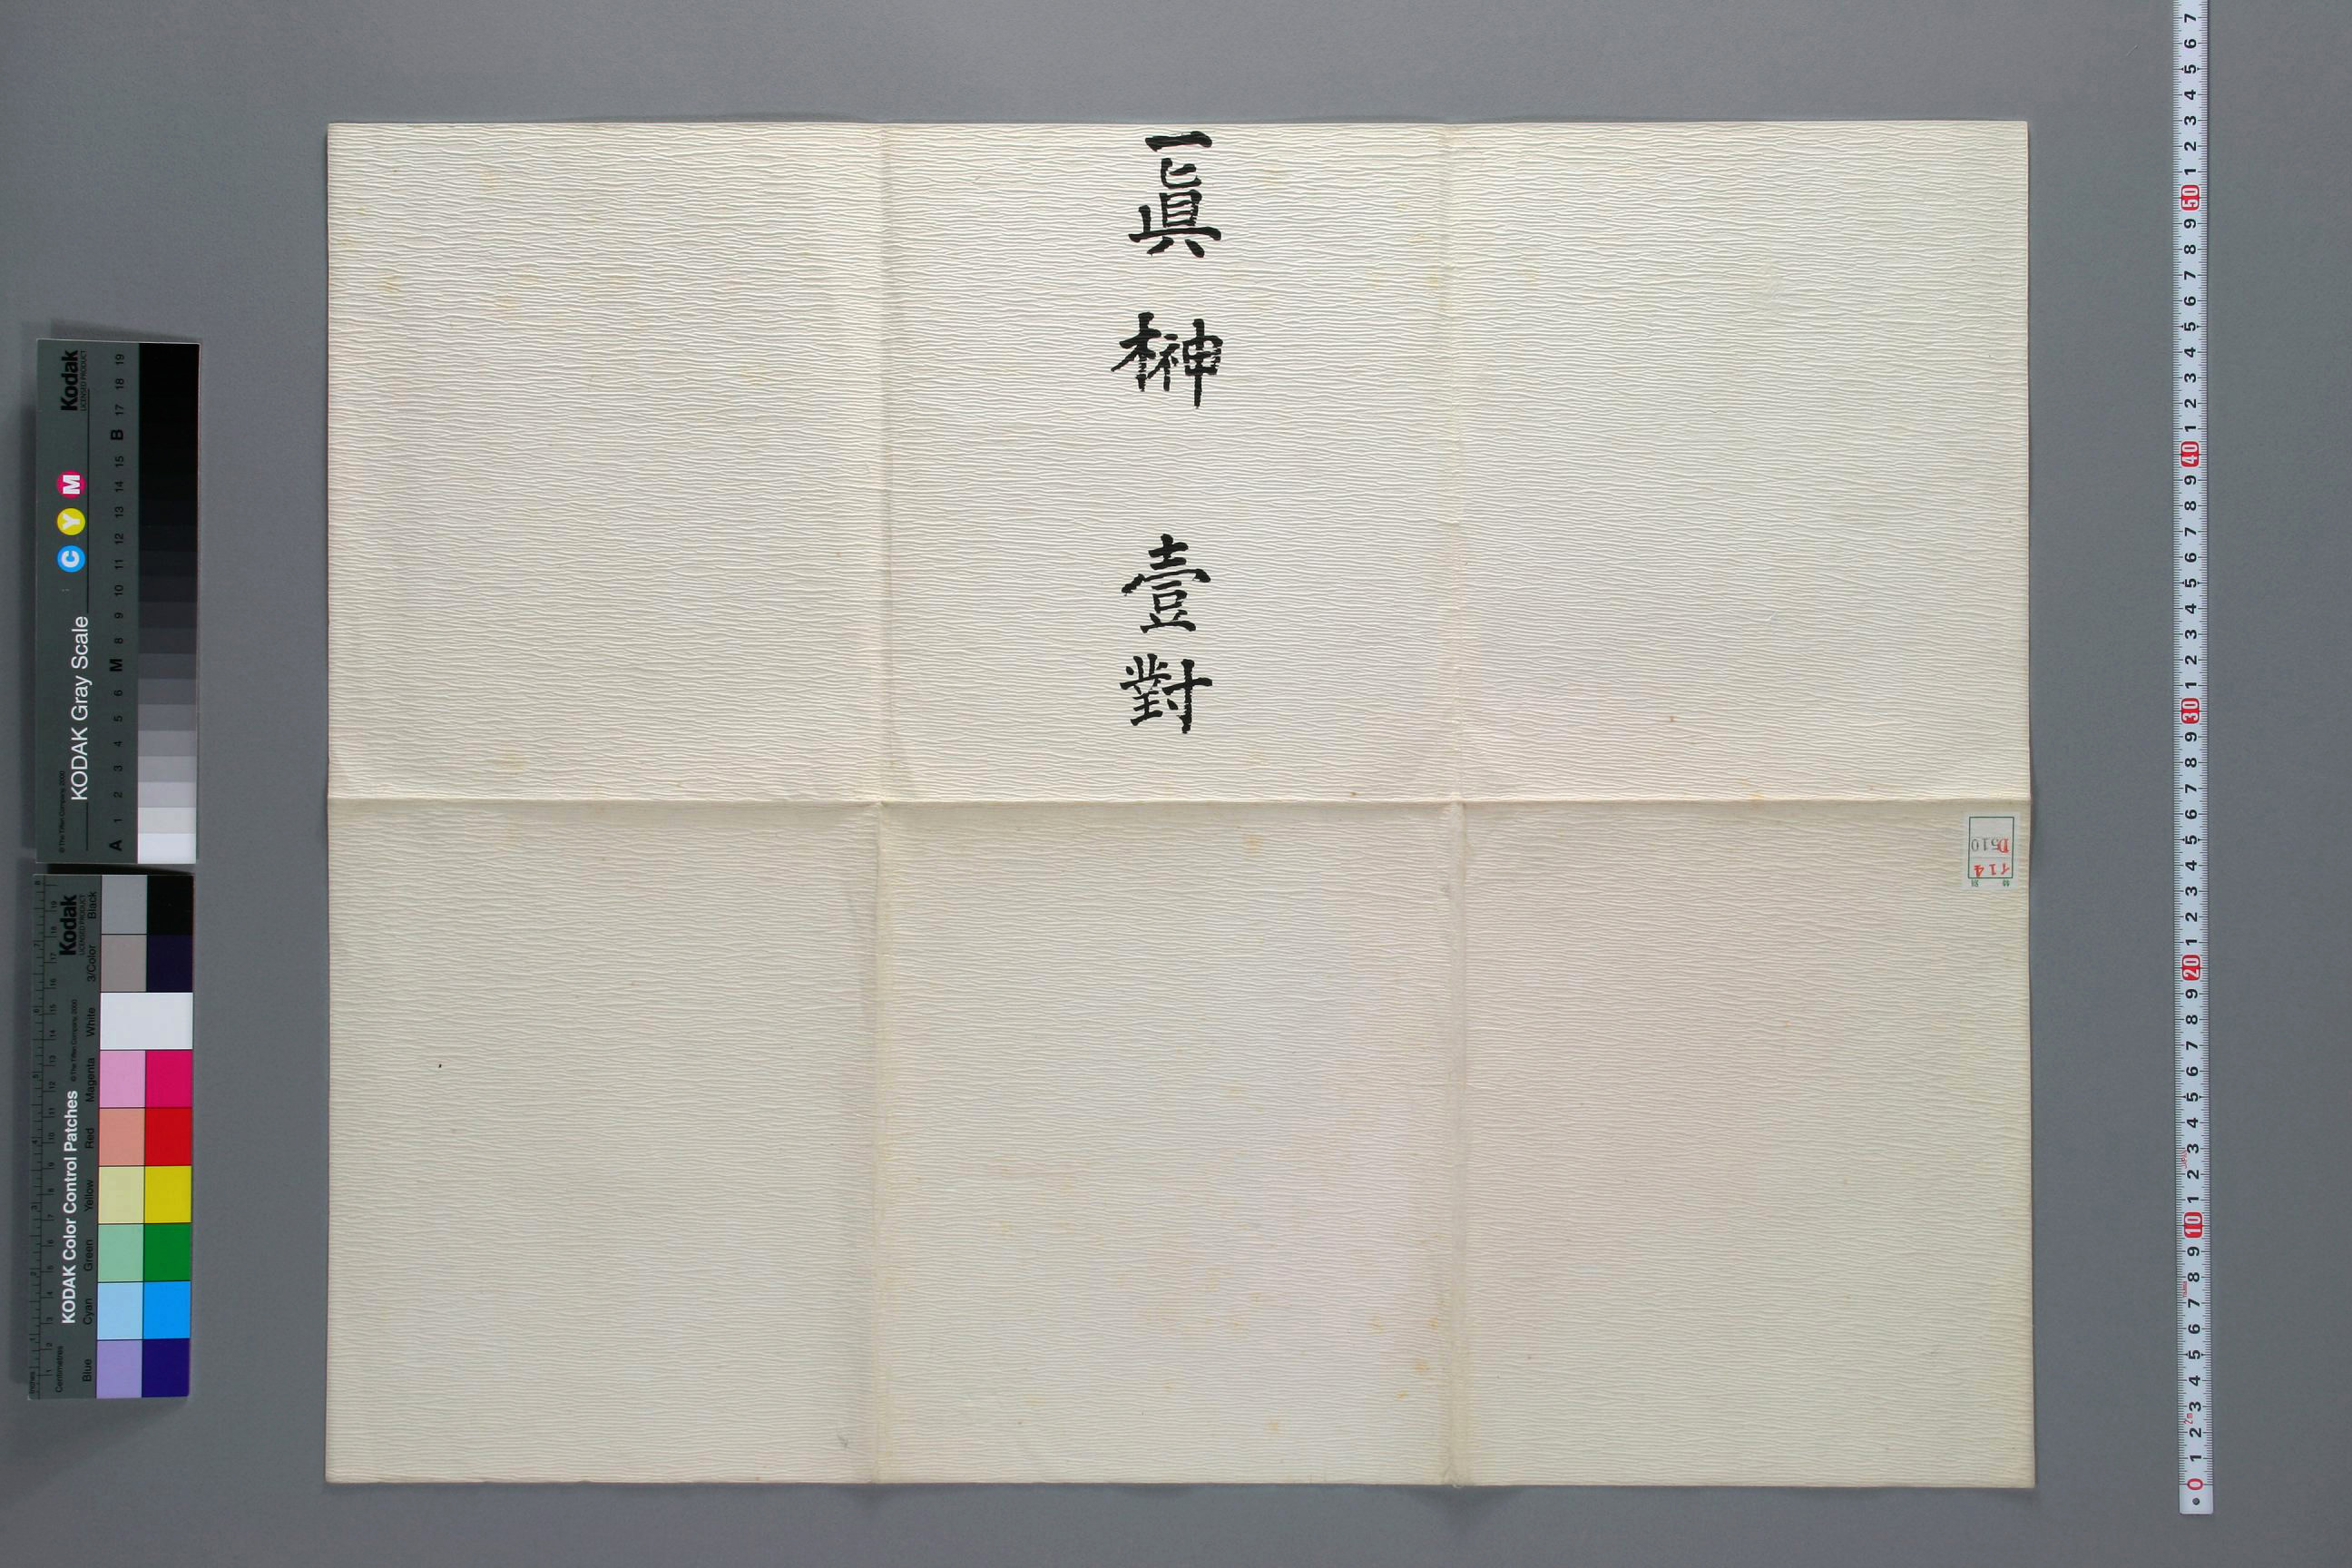 一眞榊 壹對
D510
114
Kodak
LICENSED PRODUCT
KODAK Gray Scale
C Y M
© The Tiffen Company, 2000
A 1 2 3 4 5 6 M 8 9 10 11 12 13 14 15 B 17 18 19
Kodak
LICENSED PRODUCT
KODAK Color Control Patches
© The Tiffen Company, 2000
Blue Cyan Green Yellow Red Magenta White 3/Color Black
Inches
Centimetres
7
6
5
4
3
2
1
50
9
8
7
6
5
4
3
2
1
40
9
8
7
6
5
4
3
2
1
30
9
8
7
6
5
4
3
2
1
20
9
8
7
6
5
4
3
2
1
10
9
8
7
6
5
4
3
2
1
0